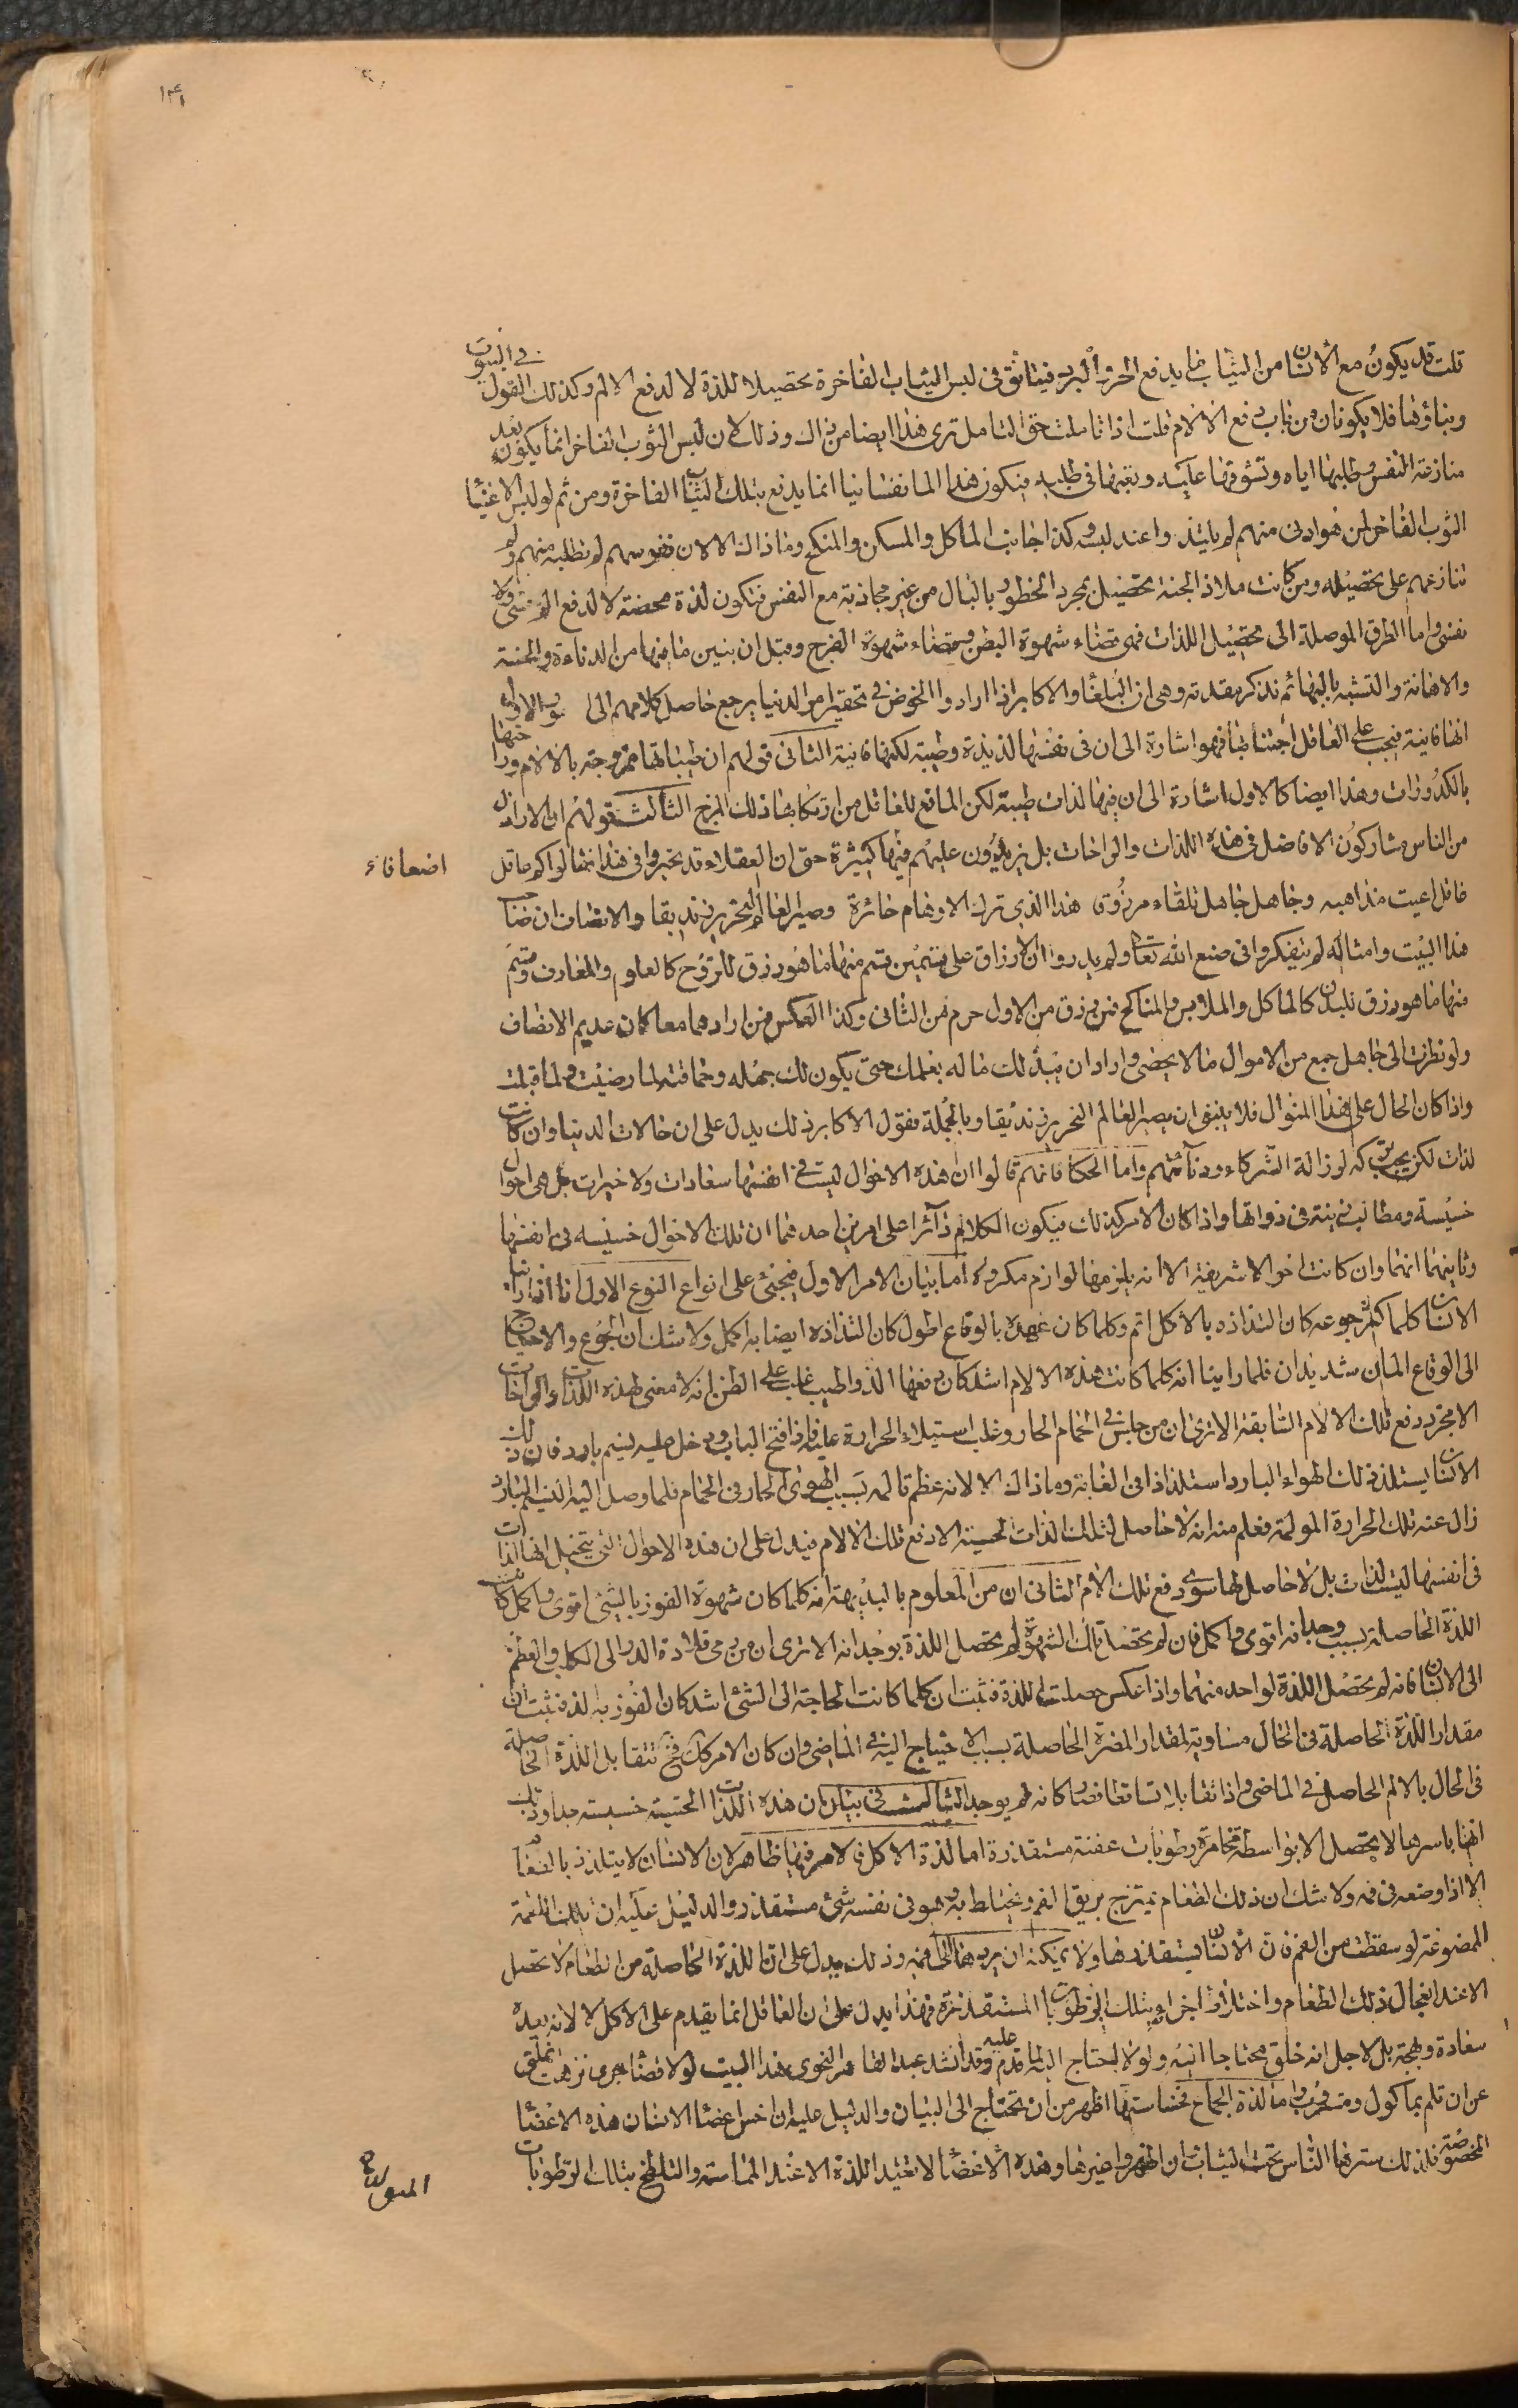 ١٣٤
قلت قد يكون مع الانسان من الثياب ما يدفع الحر والبرد فيتانق فى لبس الثياب الفاخرة تحصيلا للذة لا لدفع الالم وكذلك القول فى البيوت
وبناؤها فلا يكونان من باب دفع الالام قلت اذا تاملت حق التامل ترى هذا ايضا من ذاك وذلك لان لبس الثوب الفاخر انما يكون بعد
منازعة النفس وطلبها اياه وتشوقها عليه وتعبها فى طلبه فيكون هذا الما نفسانيا انما يدفع بتلك الثياب الفاخرة ومن ثم لو لبس الاغنيا
الثوب الفاخر لمن هو ادنى منهم لم يلتذوا عند لبسه وكذا جانب الماكل والمسكن والمنكح وما ذاك الا لان نفوسهم لم تطلبه منهم ولم
تنازعهم على تحصيله ومن كانت ملاذ الجنة تحصيل بمجرد الخطور بالبال من غير مجاذبة مع النفس فتكون لذة محضة لا لدفع الم حسى ولا
نفسى واما الطرق الموصلة الى تحصيل اللذات فهى قضاء شهوة البطن وقضاء شهوة الفرج وقبل ان نبين ما فيها من الدناءة والخسة
والاهانة والتشبه بالبهائم نذكر مقدمة وهى ان البلغا والاكابر اذا ارادوا الخوض فى تحقير امر الدنيا يرجع حاصل كلامهم الى الاول
انها فانية فيجب على العاقل اجتنابها فهو اشارة الى ان فى نفسها لذيذة وطيبة لكنها فانية الثانى قولهم ان طيباتها ممزوجة بالالام وراحتها
بالكدورات وهذا ايضا كالاول اشارة الى ان فيها لذات طيبة لكن المانع للعاقل من ارتكابها ذلك المزج الثالث قولهم ان الاراذل
من الناس مشاركون الافاضل فى هذه اللذات والراحات بل يزيدون عليهم فيها كثيرة حتى ان العقلاء قد تحيروا فى هذا فقالوا كم عاقل
اضعافا
عاقل اعيت مذاهبه وجاهل جاهل تلقاه مرزوق هذا الذي ترك الاوهام حائرة وصير العالم النحرير زنديقا والانصاف ان صاحب
هذا البيت وامثاله لم يتفكروا فى صنع الله تعالى ولم يدروا ان الارزاق على قسمين قسم منها ما هو رزق للروح كالعلوم والمعارف وقسم
منها ما هو رزق للبدن كالماكل والملابس والمناكح فمن رزق من الاول حرم من الثانى وكذا العكس فمن ارادهما معا كان عديم الانصاف
ولو نظرت الى جاهل جمع من الاموال ما لا يحصى واراد ان يبذلك ماله بعلمك حتى يكون لك جهله وحماقته لما رضيت ولما قبلت
واذا كان الحال على هذا المنوال فلا ينبغى ان يصير العالم النحرير زنديقا وبالجملة فقول الاكابر ذلك يدل على ان حالات الدنيا وان كانت
لذات لكن يجب تركه لرذالة الشركاء ودنآئتهم واما الحكما فانهم قالوا ان هذه الاحوال ليست فى انفسها سعادات ولا خيرات بل هى احوال
خسيسة ومطالب دنيئة فى ذواتها واذا كان الامر كذلك فيكون الكلام دآئرا على امرين احدهما ان تلك الاحوال خسيسه فى انفسها
وثانيهما انها وان كانت احوالا شريفة الا انه يلزمها لوازم مكروهة اما بيان الامر الاول فيجئى على انواع النوع الاول انا اذا راينا
الانسان كلما اكثر جوعه كان التذاذه بالاكل اتم وكلما كان عهده بالوقاع اطول كان التذاذه ايضا به اكمل ولا شك ان الجوع والاحتياج
الى الوقاع المان شديدان فلما راينا انه كلما كانت هذه الالام اشد كان دفعها الذ واطيب غلب على الظن انه لا معنى لهذه اللذات والراحات
الا مجرد دفع تلك الالام السابقة الا ترى ان من جلس فى الحمام الحار وغلب استيلاء الحرارة عليه فاذا فتح الباب ودخل عليه نسيم بارد فان ذلك
الانسان يستلذ ذلك الهواء البارد استلذاذا فى الغاية وما ذاك الا لانه عظم تالمه بسبب الهوى الحار فى الحمام فلما وصل اليه النسيم البارد
زال عنه تلك الحرارة المولمة فعلم منه انه لا حاصل لتلك اللذات الحسية الا دفع تلك الالام فيدل على ان هذه الاحوال التى يتخيل انها لذات
فى انفسها ليست لذات بل لا حاصل لها سوى دفع تلك الالام الثانى ان من المعلوم بالبديهة انه كلما كان شهوة الفوز بالشئى اقوى واكمل كانت
اللذة الحاصلة بسبب وجدانه اقوى واكمل فان لم تحصل تلك الشهوة لم تحصل اللذة بوجدانه الا ترى ان من رمى قلادة الدر الى الكلب والعظم
الى الانسان فانه لم تحصل اللذة لواحد منهما واذا عكس حصلت اللذة فثبت ان كلما كانت الحاجة الى الشئ اشد كان الفوز به الذ فثبت ان
مقدار اللذة الحاصلة فى الحال مساوية لمقدار المضرة الحاصلة بسبب الاحتياج اليه فى الماضى وان كان الامر كك فح تتقابل اللذة الحاصلة
فى الحال بالالم الحاصل فى الماضى واذا تقابلا تساقطا فصار كانه لم يوجد الثالث فى بيان ان هذه اللذات الحسية خسيسة جدا وذلك
انها باسرها لا تحصل الا بواسطة مخامرة رطوبات عفنة مستقذرة اما لذة الاكل فالامر فيها ظاهر لان الانسان لا يتلذذ بالطعام
الا اذا وضعه فى فمه ولا شك ان ذلك الطعام يمتزج بريق الفم ويختلط به وهو فى نفسه شئ مستقذر والدليل عليه ان تلك اللقمة
الممضوغة لو سقطت من الفم فان الانسان يستقذرها ولا يمكنه ان يردها الى فمه وذلك يدل على ان اللذة الحاصلة من الطعام لا تحصل
الا عند انعجال ذلك الطعام واختلاط اجزائه بتلك الرطوبات المستقذرة فهذا يدل على ان العاقل انما يقدم على الاكل لا لانه يعده
سعادة وبهجة بل لاجل انه خلق محتاجا اليه ولولا الاحتاج اليه لما قدم عليه وقد انشد عبد القاهر النحوى هذا البيت لولا قضا جرى نزهت انملتى
عن ان تلم بماكول ومشروب واما لذة الجماع فخساستها اظهر من ان تحتاج الى البيان والدليل عليه ان اخس اعضا الانسان هذه الاعضا
المخصوصة فلذلك سترها الناس تحت الثياب وان اظهروا غيرها وهذه الاعضا لا تفيد اللذة الا عند المماسة والتلطخ بتلك الرطوبات